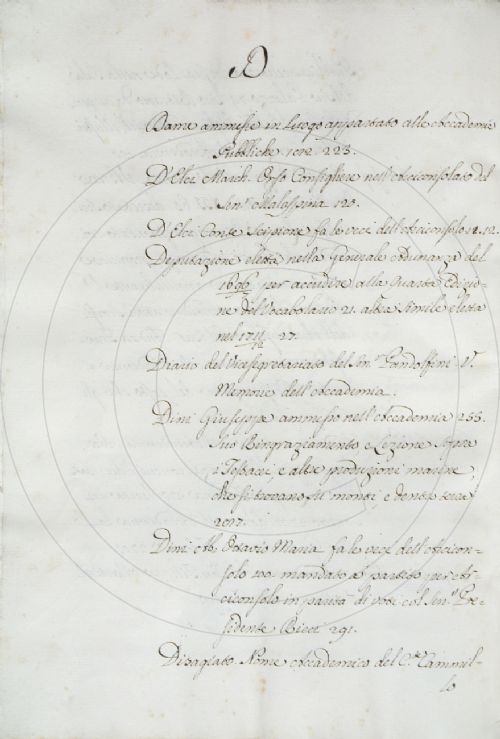 D
Dame ammesse in Luogo appartato alle Accademie
Pubbliche 102. 223.
D'Elci March. Orso Consigliere nell'Arciconsolato del
Sen.e Malaspina 120.
D'Elci Conte Scipione fa le veci dell'Arciconsolo 12.12.
Deputazione eletta nella Generale Adunanza del
1696 per accudire alla quarta Edizio-
ne del Vocabolario 21. altra simile eletta
nel 1711/12 27.
Diario del Vicesegretariato del Sen.e Pandolfini V.
Memorie dell'Accademia.
Dini Giuseppe ammesso nell'Accademia 255.
Suo Ringraziamento e Lezione sopra
i Testacei, e altre produzioni marine,
che si trovano su' monti, e dentro terra
Dini Ab. Ottavio Maria fa le veci dell'Arcicon-
solo 100. mandato a partito per Ar-
ciconsolo in parità di voti col Sen.e Pre-
sidente Ricci 291.
Disagiato Nome Accademico del C.te Cammil-
lo